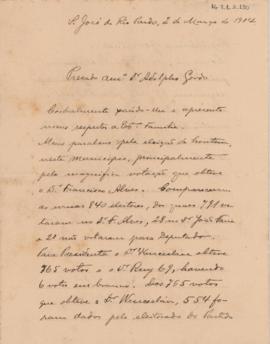 S. José do Rio Pardo, 2 de Março de 1914
Prezado am.º Dr. Adolpho Gordo
Cordialmente saúdo-lhe e apresento
meus respeitos a Exª. Familia.
Meus parabens pela eleição de hontem,
neste municipio, principalmente
pela magnifica votação que obteve
o Dr. Francisco Alves. Compareceram
as urnas 840 eleitores, dos quaes 791 vo
taram no Dr. F. Alves, 28 no Dr. João
e 21 não votaram para Deputado.
Para Presidente o Dr. Wenceslau obteve
765 votos e o Dr. Ruy 69, havendo
6 votos em branco. Dos 765 votos
que obteve o Dr. Wenceslau, 554 fo
ram dados pelo eleitorado do Partido